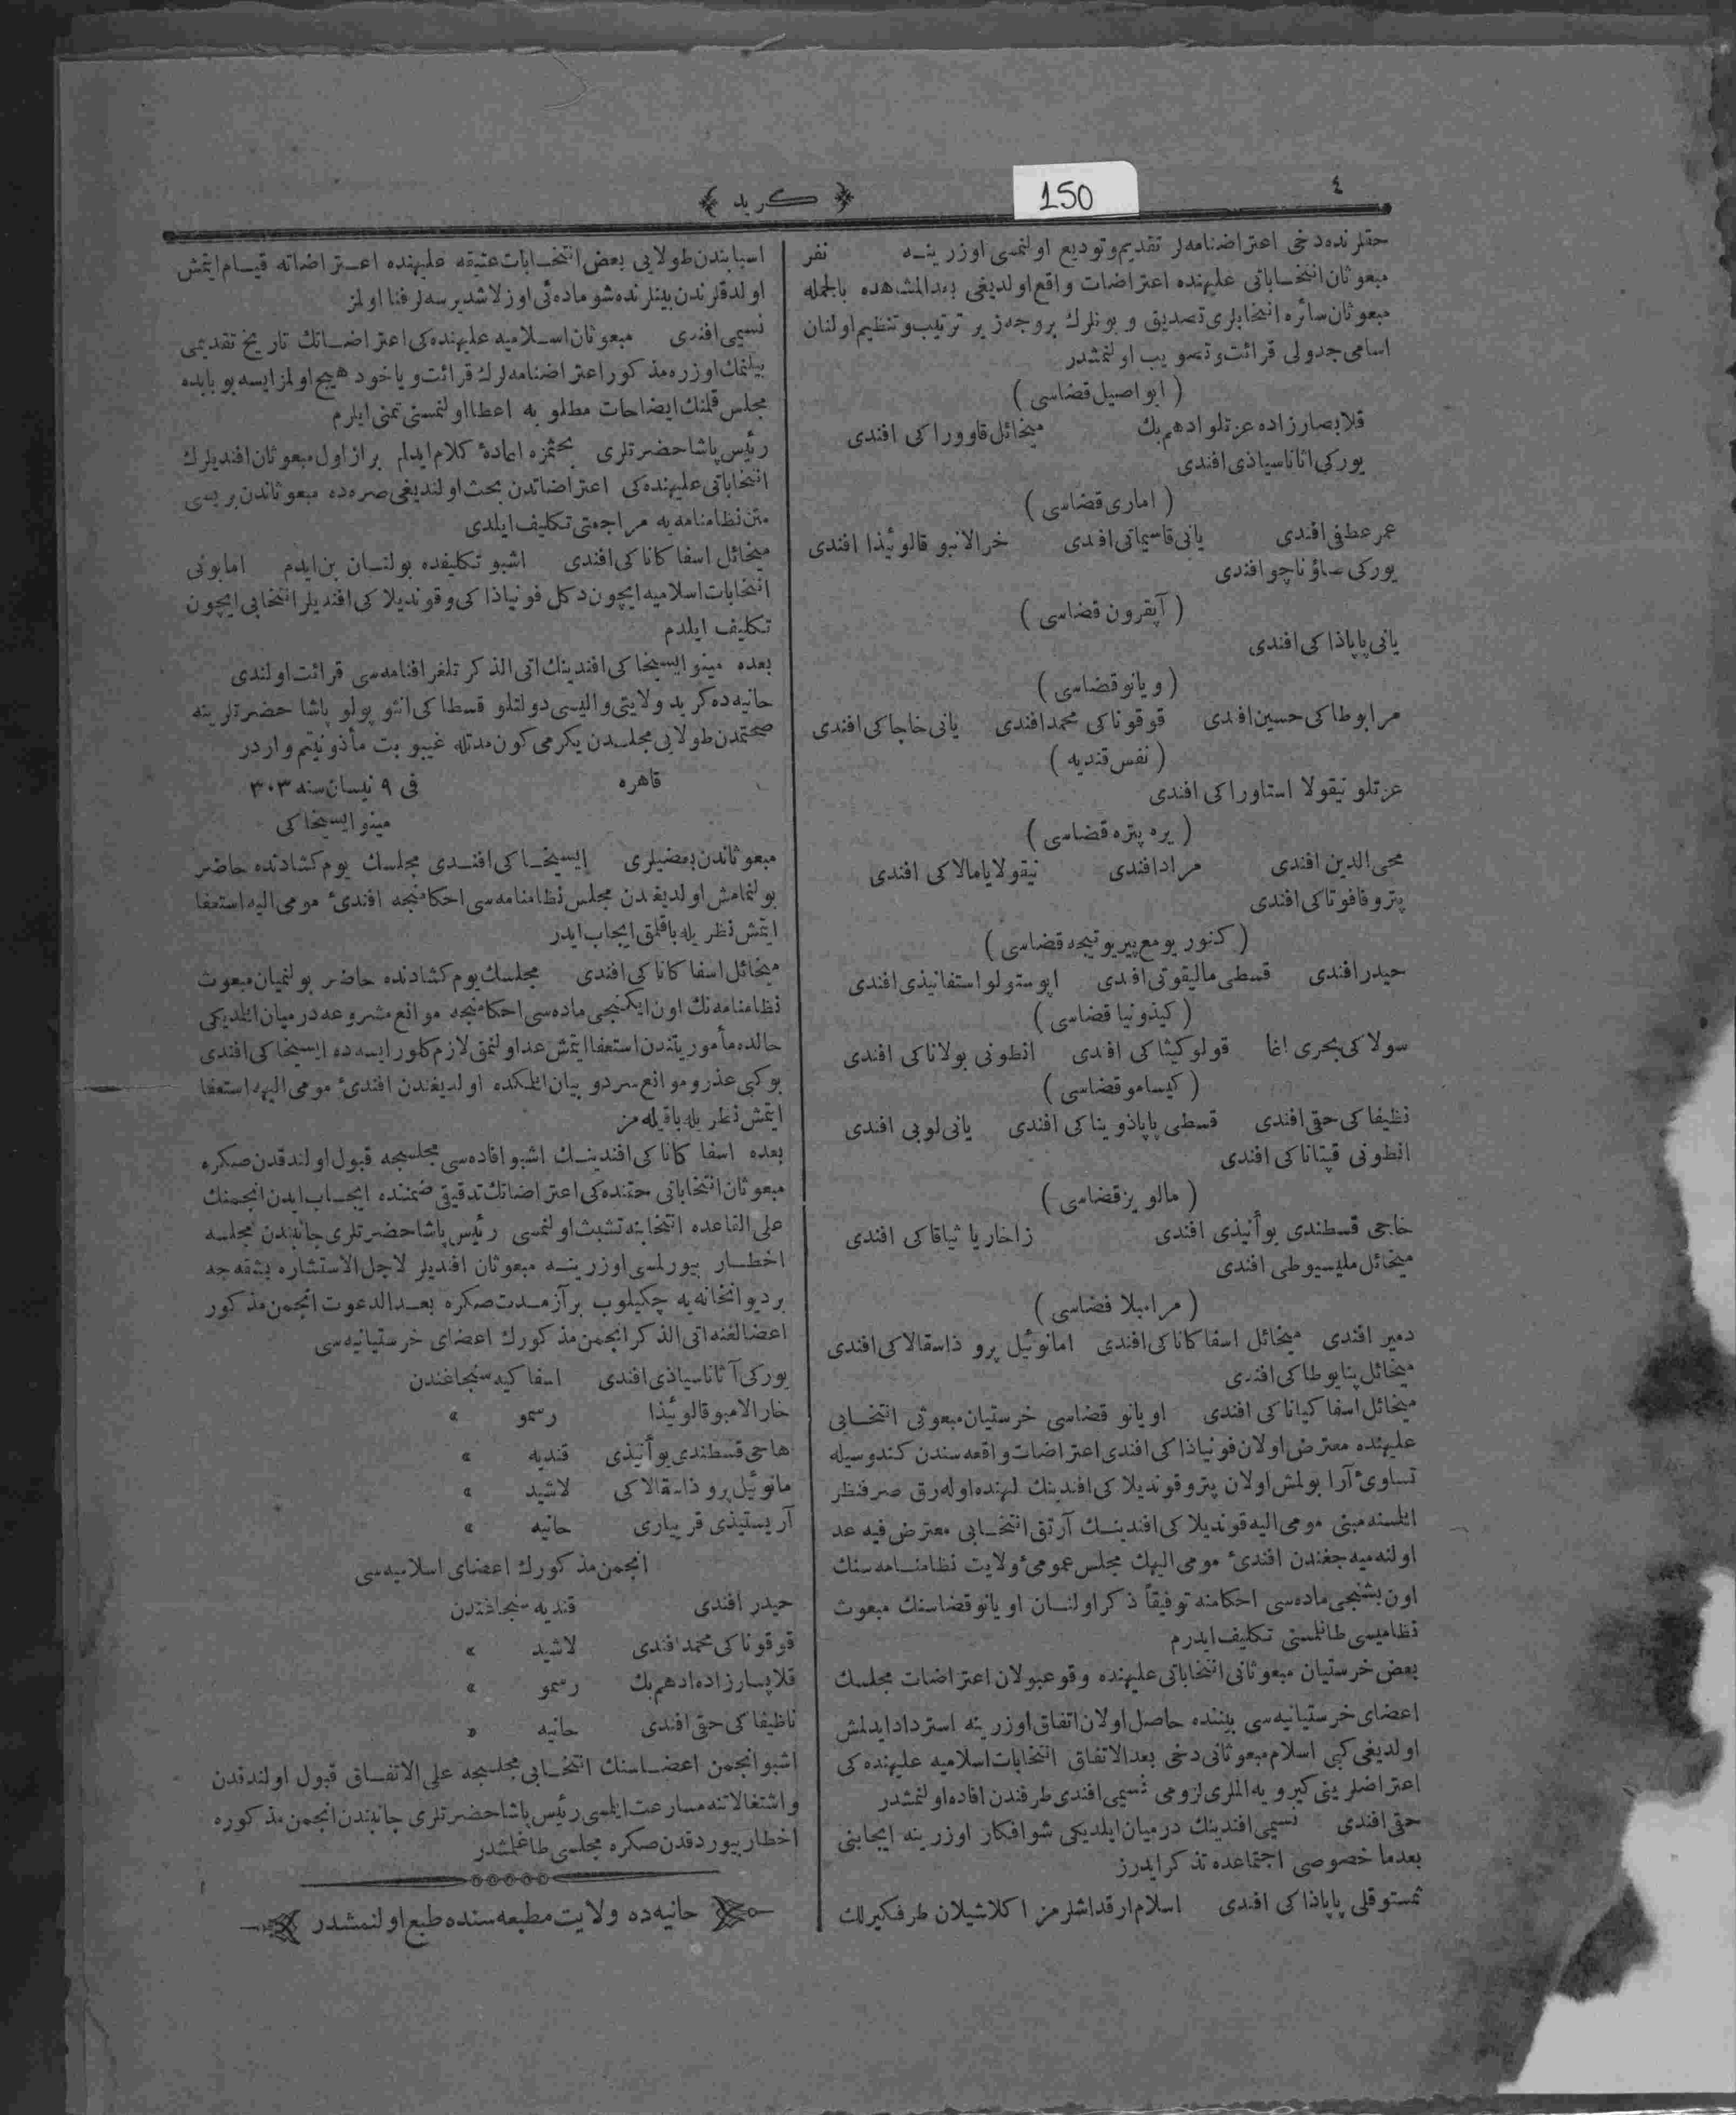 ٤
150
﴿ كريد ﴾
حقلرنده دخی اعتراضنامه‌لر تقدیم و تودیع اولنمسی اوزرینه نفر
مبعوثان انتخاباتی علیهنده اعتراضات واقع اولدیغی بعدالمشاهده بالجمله
مبعوثان سائره انتخابلری تصدیق و بونلرك بروجه‌زیر ترتیب و تنظیم اولنان
اسامی جدولی قرائت و تصویب اولنمشدر
( ابواصیل قضاسی )
قلابصارزاده عزتلو ادهم بك میخائل قاووراکی افندی
یورکی اتاناسیاذی افندی
( اماری قضاسی )
عمر عطفی افندی یانی قاسیماتی افندی خرالانبو قالوئیذا افندی
یورکی ساؤناچو افندی
( آپقرون قضاسی )
یانی پاپاذاکی افندی
( ویانو قضاسی )
مرابوطاکی حسین افندی قوقوناکی محمد افندی یانی خاجاکی افندی
( نفس قندیه )
عزتلو نیقولا استاوراکی افندی
( یره پتره قضاسی )
محی الدین افندی مراد افندی نیقولا یامالاکی افندی
پترو فافوتاکی افندی
( کنوریو مع پیریوتیجه قضاسی )
حیدر افندی قسطی مالیقوتی افندی اپوستولو استفانیذی افندی
( کیذونیا قضاسی )
سولاکی بحری اغا قولوکیثاکی افندی انطونی بولاناکی افندی
( کیسامو قضاسی )
نظیفاکی حقی افندی قسطی پاپاذویناکی افندی یانی لوبی افندی
انطونی قپتاناکی افندی
( مالویز قضاسی )
خاجی قسطندی بوآنیذی افندی زاخاریا ثیاقاکی افندی
میخائل ملیسیوطی افندی
( مرامبلا قضاسی )
دمیر افندی میخائل اسفاکاناکی افندی امانوئیل پرو ذاسقالاکی افندی
میخائل پنایوطاکی افندی
میخائل اسفاکیاناکی افندی اویانو قضاسی خرستیان مبعوثی انتخابی
علیهنده معترض اولان فونیاذاکی افندی اعتراضات واقعه‌سندن کندوسیله
تساوئ آرا بولمش اولان پترو قوندیلاکی افندینك لهنده اوله‌رق صرفنظر
ایلسنه مبنی مومی الیه قوندیلاکی افندینك آرتق انتخابی معترض فیه عد
اولنه‌میه‌جغندن افندئ مومی الیهك مجلس عمومئ ولایت نظامنامه‌سنك
اون بشنجی ماده‌سی احکامنه توفیقاً ذکر اولنان اویانو قضاسنك مبعوث
نظامیسی طانلمسنی تکلیف ایدرم
بعض خرستیان مبعوثانی انتخاباتی علیهنده وقوعبولان اعتراضات مجلسك
اعضای خرستیانیه‌سی بیننده حاصل اولان اتفاق اوزرینه استرداد ایدلمش
اولدیغی کبی اسلام مبعوثانی دخی بعدالاتفاق انتخابات اسلامیه علیهنده‌کی
اعتراضلرینی کیرویه المالری لزومی نسیمی افندی طرفندن افاده اولنمشدر
حقی افندی نسیمی افندینك درمیان ایلدیکی شو افکار اوزرینه ایجابنی
بعدما خصوصی اجتماعده تذکر ایدرز
ثمستوقلی پاپاذاکی افندی اسلام ارقداشلرمز اکلاشیلان طرفکیرلك
اسبابندن طولایی بعض انتخابات عتیقه علیهنده اعتراضاته قیام ایتمش
اولدقلرندن بینلرنده شو ماده‌ئی اوزلاشدیرسه‌لر فنا اولمز
نسیمی افندی مبعوثان اسلامیه علیهنده‌کی اعتراضاتك تاریخ تقدیمی
بیلنمك اوزره مذکور اعتراضنامه‌لرك قرائت ویاخود هیچ اولمز ایسه بو بابده
مجلس قلمنك ایضاحات مطلوبه اعطا اولنمسنی تمنی ایلرم
رئیس پاشا حضرتلری بحثمزه اعادۀ کلام ایدلم براز اول مبعوثان افندیلرك
انتخاباتی علیهنده‌کی اعتراضاتدن بحث اولندیغی صره‌ده مبعوثاندن بریسی
متن نظامنامه‌یه مراجعتی تکلیف ایلدی
میخائل اسفاکاناکی افندی اشبو تکلیفده بولنان بن ایدم اما بونی
انتخابات اسلامیه ایچون دکل فونیاذاکی و قوندیلاکی افندیلر انتخابی ایچون
تکلیف ایلدم
بعده مینو ایسیخاکی افندینك اتی الذکر تلغرافنامه‌سی قرائت اولندی
حانیه‌ده کرید ولایتی والیسی دولتلو قسطاکی انثوپولو پاشا حضرتلرینه
صحتمدن طولایی مجلسدن یکرمی کون مدتله غیبوبت مأذونیتم واردر
قاهره فی ٩ نیسان سنه ٣٠٣
مینو ایسیخاکی
مبعوثاندن بعضیلری ایسیخاکی افندی مجلسك یوم کشادنده حاضر
بولنمامش اولدیغندن مجلس نظامنامه‌سی احکامنجه افندئ مومی الیه استعفا
ایتمش نظریله باقلمق ایجاب ایدر
میخائل اسفاکاناکی افندی مجلسك یوم کشادنده حاضر بولنمیان مبعوث
نظامنامه‌نك اون ایکنجی ماده‌سی احکامنجه موانع مشروعه درمیان ایلدیکی
حالده مأموریتندن استعفا ایتمش عد اولنمق لازم کلور ایسه‌ده ایسیخاکی افندی
بوکبی عذر و موانع سرد و بیان ایلمکده اولدیغندن افندئ مومی الیهه استعفا
ایتمش نظریله باقیله‌مز
بعده اسفاکاناکی افندینك اشبو افاده‌سی مجلسجه قبول اولندقدن صکره
مبعوثان انتخاباتی حقنده‌کی اعتراضاتك تدقیقی ضمننده ایجاب ایدن انجمنك
علی القاعده انتخابنه تشبث اولنمسی رئیس پاشا حضرتلری جانبندن مجلسه
اخطار بیورلمسی اوزرینه مبعوثان افندیلر لاجل الاستشاره بشقه‌جه
بر دیوانخانه‌یه چکیلوب برآز مدت صکره بعدالدعوت انجمن مذکور
اعضالغنه اتی الذکر انجمن مذکورك اعضای خرستیانیه‌سی
یورکی آثاناسیاذی افندی اسفاکیه سنجاغندن
خارالامبو قالوئیذا رسمو »
هاجی قسطندی بوآنیذی قندیه »
مانوئیل پرو ذاسقالاکی لاشید »
آریستیذی قریپاری حانیه »
انجمن مذکورك اعضای اسلامیه‌سی
حیدر افندی قندیه سنجاغندن
قوقوناکی محمد افندی لاشید »
قلاپسارزاده ادهم بك رسمو »
ناظیفاکی حقی افندی حانیه »
اشبو انجمن اعضاسنك انتخابی مجلسجه علی الاتفاق قبول اولندقدن
و اشتغالاتنه مسارعت ایلمسی رئیس پاشا حضرتلری جانبندن انجمن مذکوره
اخطار بیوردقدن صکره مجلس طاغلمشدر
حانیه‌ده ولایت مطبعه‌سنده طبع اولنمشدر